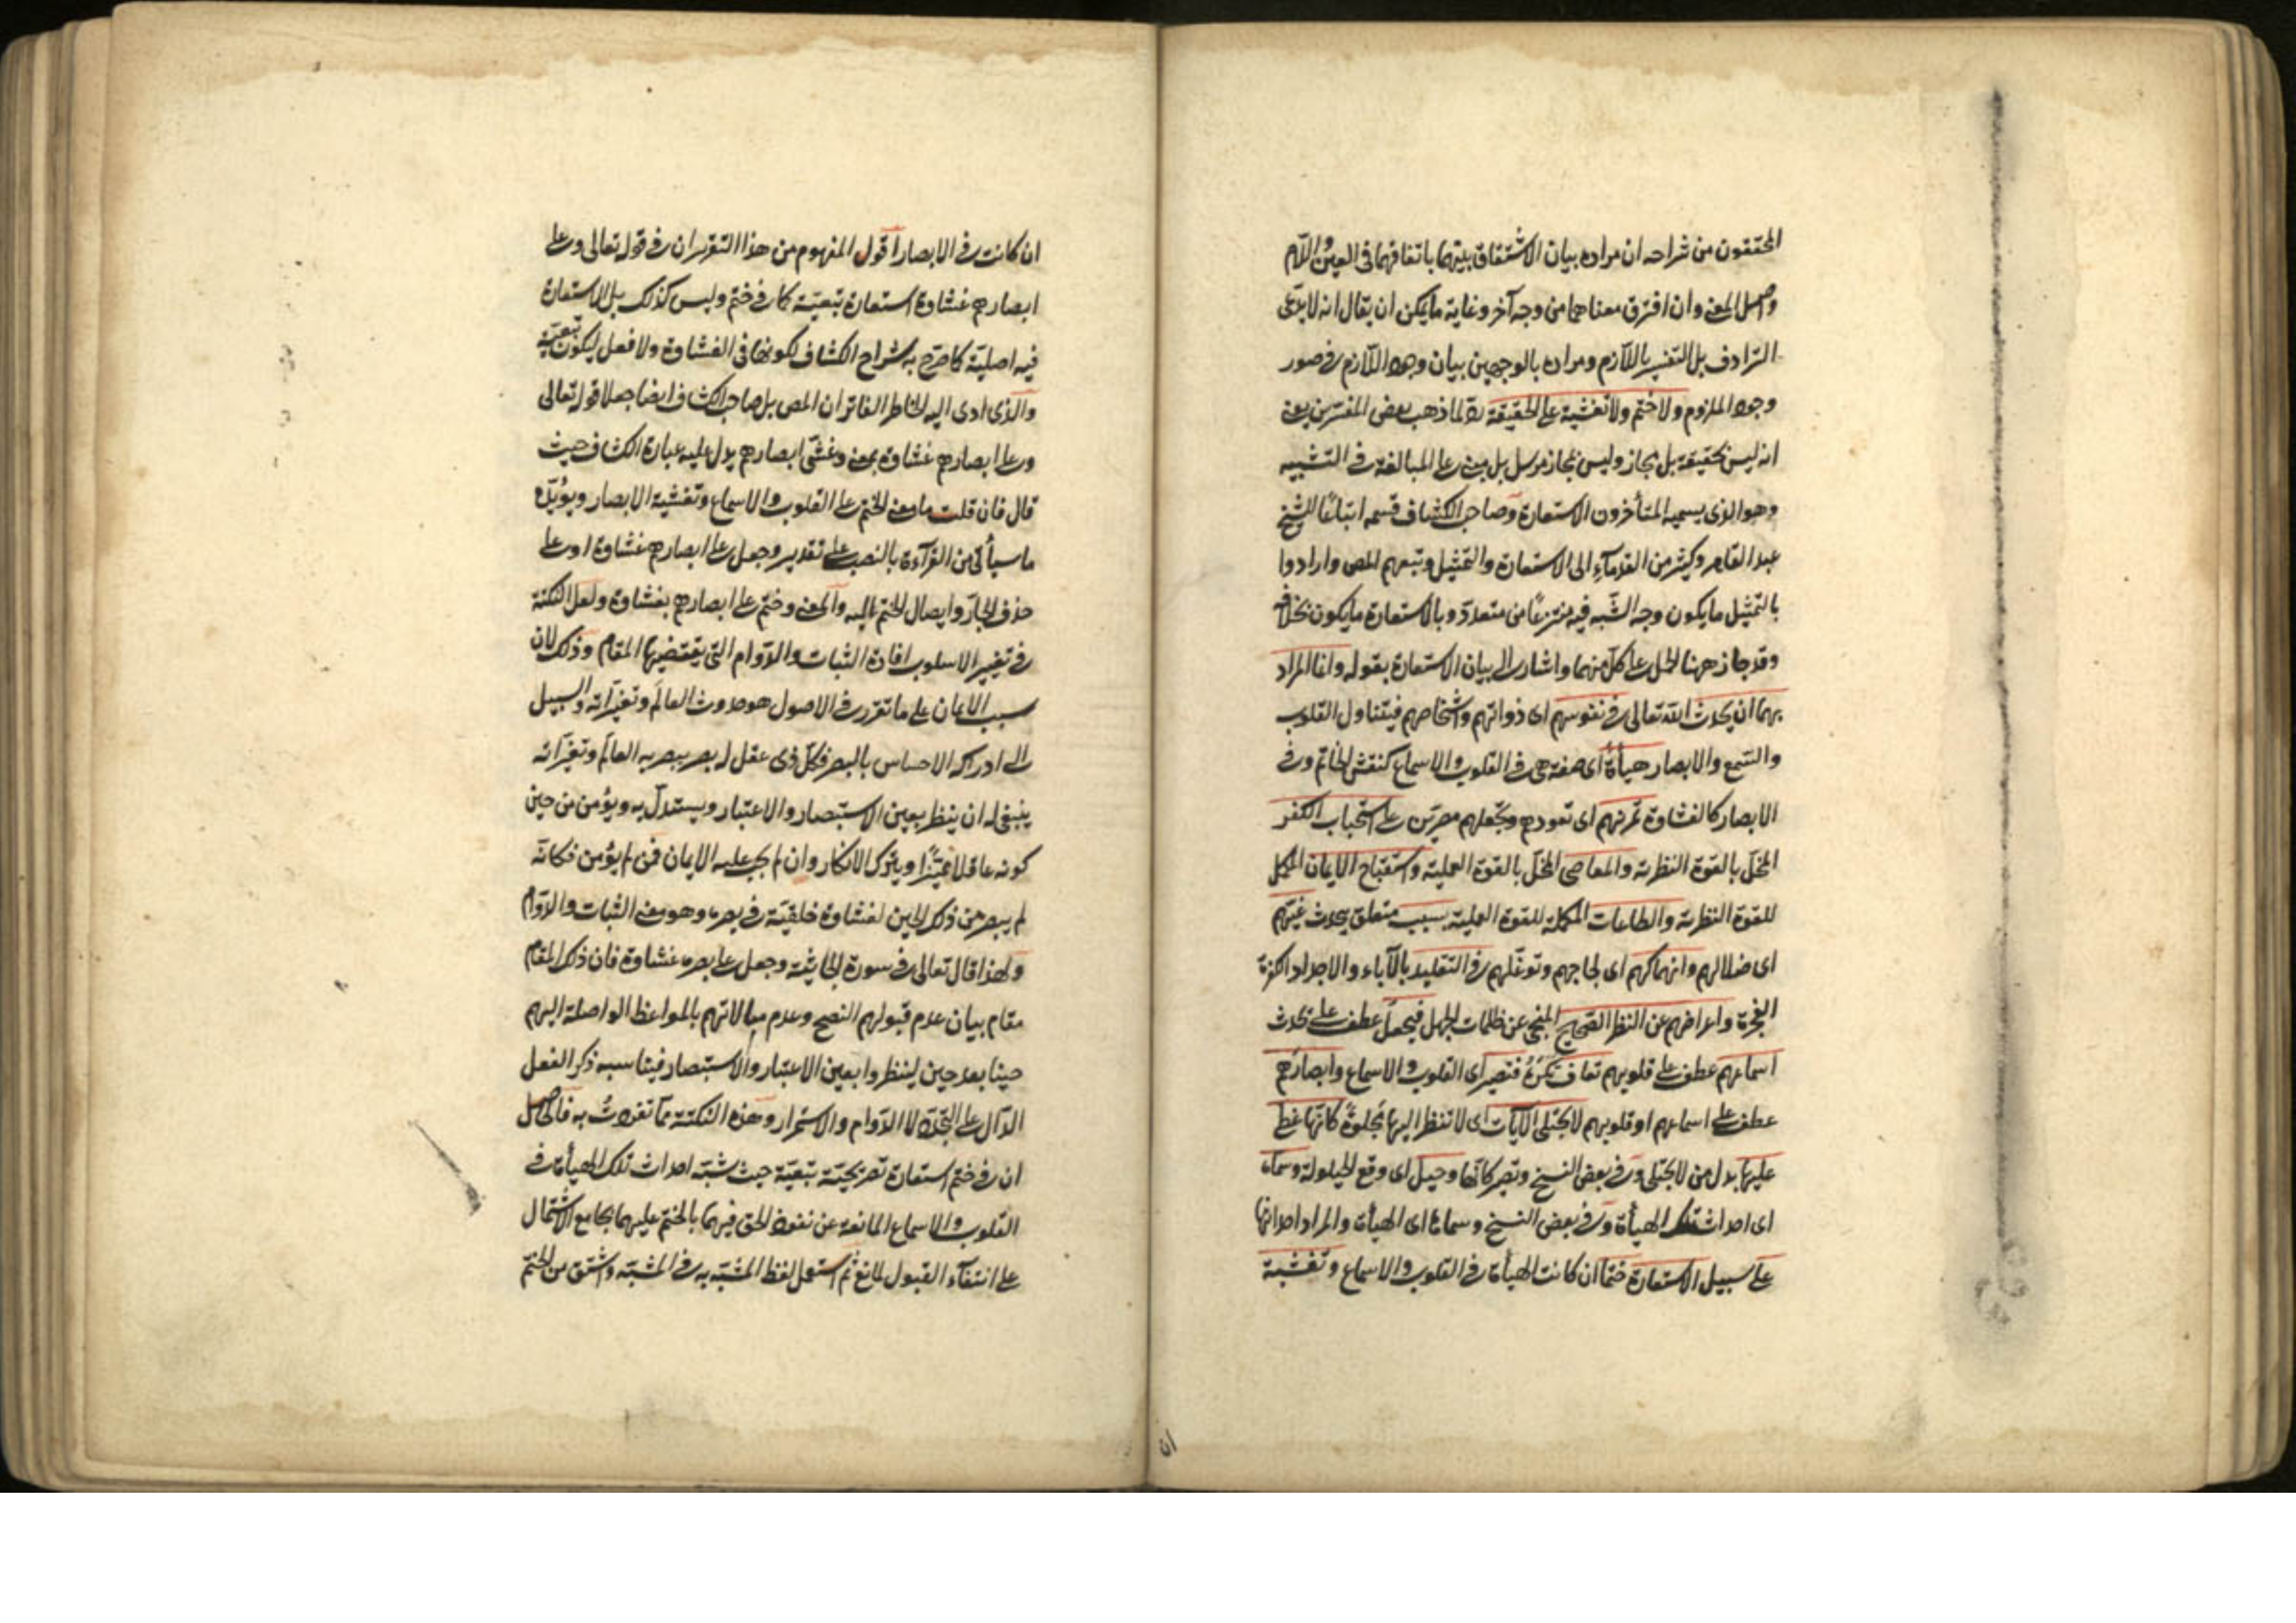 المحققون من شراحه ان مراده بيان الاشتقاق بينهما باتفاقهما فى العين واللام
واصل المعنى وان افترق معناهما من وجه آخر وغاية ما يمكن ان يقال انه لا يدعى
الترادف بل التفسير باللازم ومراده بالوجهين بيان وجود اللازم فى صور
وجود الملزوم ولا ختم ولا تغشية على الحقيقة رد لما ذهب بعض المفسرين يعنى
انه ليس بحقيقة بل مجاز وليس بمجاز مرسل بل مبنى على المبالغة فى التشبيه
وهو الذى يسميه المتأخرون الاستعارة وصاحب الكشاف قسمه اتباعًا للشيخ
عبد القاهر وكثير من القدمآء الى الاستعارة والتمثيل وتبعهم المص وارادوا
بالتمثيل ما يكون وجه الشبه فيه منتزعًا من متعدد وبالاستعارة ما يكون بخلافه
وقد جاز ههنا الحمل على كل منهما واشار الى بيان الاستعارة بقوله وانما المراد
بهما ان يحدث الله تعالى فى نفوسهم اى ذواتهم واشخاصهم فيتناول القلوب
والسمع والابصار هيأة اى صفة هى فى القلوب والاسماع كنقش الخاتم وفى
الابصار كالغشاوة تمرنهم اى تعودهم وتجعلهم مصرين على استحباب الكفر
المخل بالقوة النظرية والمعاصى المخل بالقوة العملية واستقباح الايمان المكمل
للقوة النظرية والطاعات المكملة للقوة العملية بسبب متعلق بيحدث غيهم
اى ضلالهم وانهماكهم اى لجاجهم وتوغلهم فى التقليد بالآباء والاجداد الكفرة
الفجرة واعراضهم عن النظر الصحيح المنجى عن ظلمات الجهل فيجعل عطف على يحدث
اسماعهم عطف على قلوبهم تعاف تكره فتصير اى القلوب والاسماع وابصارهم
عطف على اسماعهم او قلوبهم لا تجتلى الآيات اى لا تنظر اليها مجلوة كانها غطى
عليها بدل من لا تجتلى وفى بعض النسخ وتصير كانها وحيل اى وقع الحيلولة وسماه
اى احداث تلك الهيأة وفى بعض النسخ وسماها اى الهيأة والمراد احداثها
على سبيل الاستعارة ختما ان كانت الهيأة فى القلوب والاسماع وتغشية
ان
ان كانت فى الابصار اقول المفهوم من هذا التقرير ان فى قوله تعالى وعلى
ابصارهم غشاوة استعارة تبعية كما فى ختم وليس كذلك بل الاستعارة
فيه اصلية كما صرح به شراح الكشاف لكونها فى الغشاوة ولا فعل ليكون تبعية
والذى ادى اليه الخاطر الفاتر ان المص بل صاحب الكشاف ايضا جعلا قوله تعالى
وعلى ابصارهم غشاوة بمعنى وغشى ابصارهم يدل عليه عبارة الكشاف حيث
قال فان قلت ما معنى الختم على القلوب والاسماع وتغشية الابصار ويؤيده
ما سيأتى من القرآءة بالنصب على تقدير وجعل على ابصارهم غشاوة او على
حذف الجار وايصال الختم اليه والمعنى وختم على ابصارهم بغشاوة ولعل النكتة
فى تغيير الاسلوب افادة الثبات والدوام التى يقتضيها المقام وذلك لان
سبب الايمان على ما تقرر فى الاصول هو حدوث العالم وتغيراته والسبيل
الى ادراكه الاحساس بالبصر فكل ذى عقل له بصر يبصر به العالم وتغيراته
ينبغى له ان ينظر بعين الاستبصار والاعتبار ويستدل به ويؤمن من حين
كونه عاقلا مميزًا ويترك الانكار وان لم يجب عليه الايمان فمن لم يؤمن فكانه
لم يبصر من ذلك الحين لغشاوة خلقية فى بصره وهو معنى الثبات والدوام
ولهذا قال تعالى فى سورة الجاثية وجعل على بصره غشاوة فان ذلك المقام
مقام بيان عدم قبولهم النصح وعدم مبالاتهم بالمواعظ الواصلة اليهم
حينا بعد حين لينظروا بعين الاعتبار والاستبصار فيناسبه ذكر الفعل
الدال على التجدد لا الدوام والاستمرار وهذه النكتة مما تفردت به فالحاصل
ان فى ختم استعارة تصريحية تبعية حيث شبه احداث تلك الهيأة فى
القلوب والاسماع المانعة عن نفوذ الحق فيهما بالختم عليهما بجامع الاشتمال
على انتفآء القبول لمانع ثم استعمل لفظ المشبه به فى المشبه واشتق من الختم